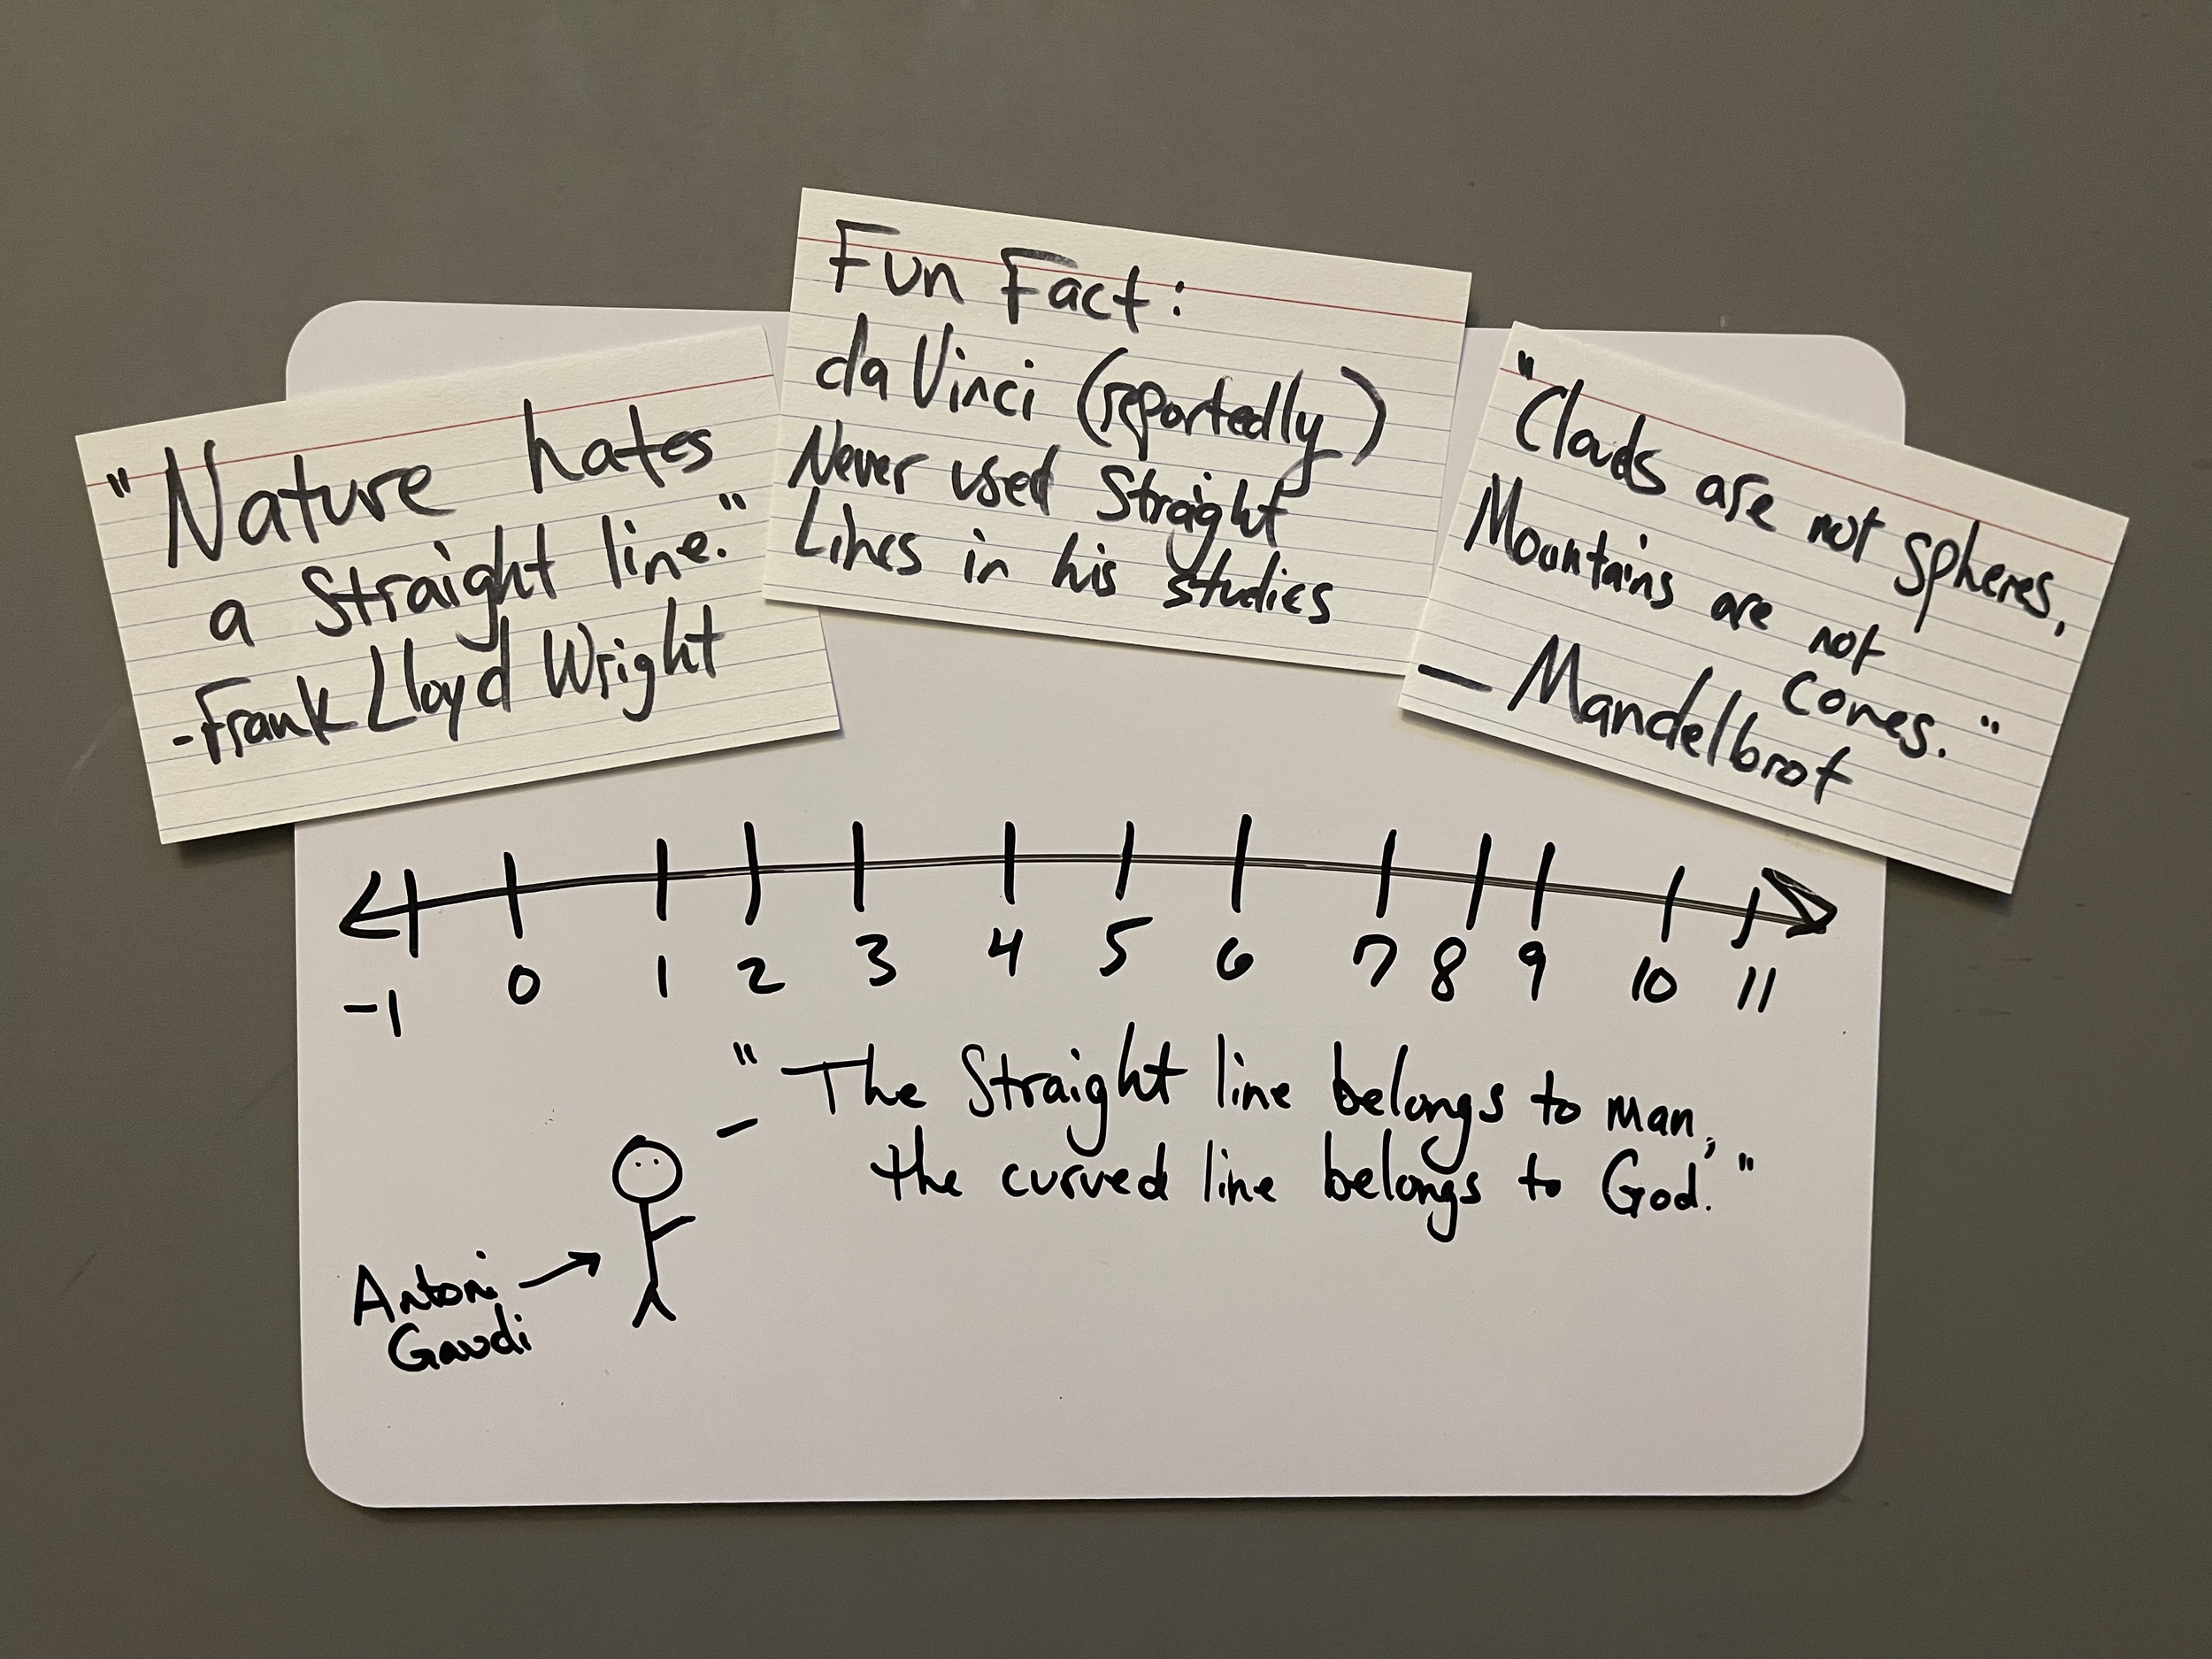 "Nature hates
a Straight line."
-Frank Lloyd Wright
Fun Fact:
da Vinci (reportedly)
Never used Straight
Lines in his studies
"Clouds are not spheres,
Mountains are not
cones."
— Mandelbrot
-1 0 1 2 3 4 5 6 7 8 9 10 11
"The Straight line belongs to man,
the curved line belongs to God."
Antoni
Gaudi